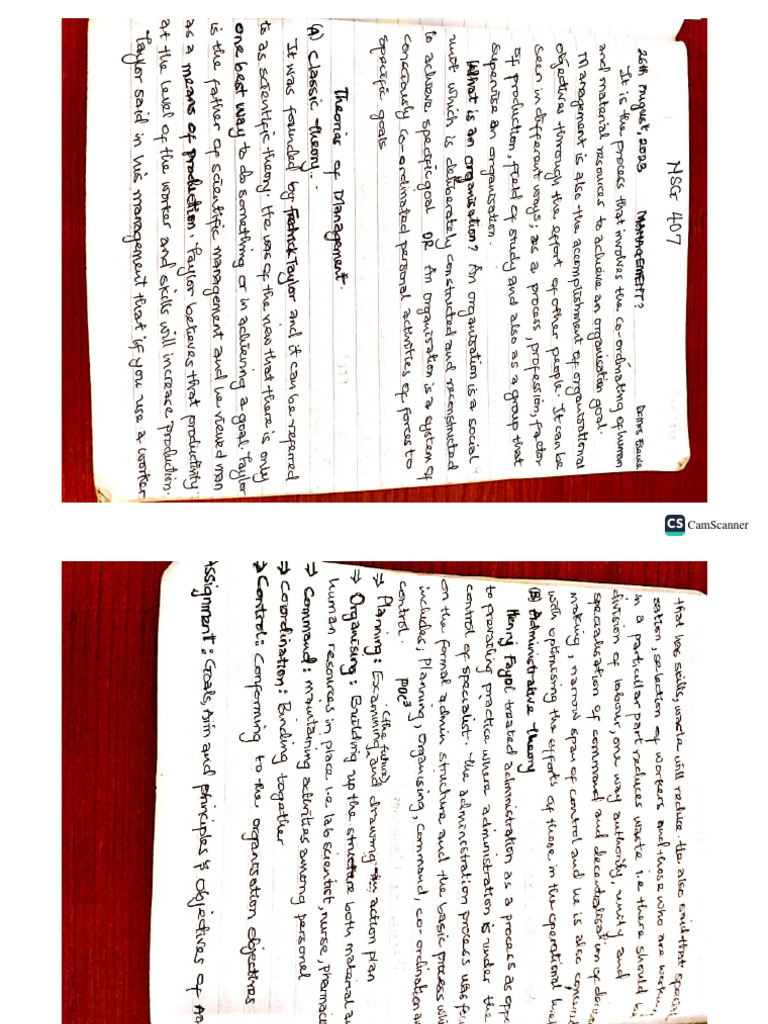 NSG 407
26th August, 2023 MANAGEMENT? Dr. Mrs
It is the process that involves the co-ordinating of human
and material resources to achieve an organisation goal.
Management is also the accomplishment of organisational
objectives through the effort of other people. It can be
seen in different ways; as a process, profession, factor
of production, field of study and also as a group that
supervise an organisation.
What is an organisation? An organisation is a social
unit which is deliberately constructed and reconstructed
to achieve specific goal OR An organisation is a system of
consciously co-ordinated personal activities of forces to
specific goals
Theories of Management.
(A) Classic theory..
It was founded by Fredrick Taylor and it can be referred
to as scientific theory. He was of the view that there is only
one best way to do something or in achieving a goal. Taylor
is the father of scientific management and he viewed man
as a means of production. Taylor believes that productivity
at the level of the worker and skills will increase production.
Taylor said in his management that if you use a worker
CS CamScanner
that has skills, waste will reduce. He also said that special
isation, selection of workers and those who are working
in a particular part reduces waste i.e there should be
division of labour, one way authority, unity and
specialisation of command and decentralisation of
making, narrow span of control and he is also
with optimising the efforts of those in the operational level
(B) Administrative theory
Henry Fayol treated administration as a process as
to prevailing practice where administration is under the
control of specialist. The administration process was
on the formal admin structure and the basic process
includes; Planning, organising, command, co-ordination
control. POC³
(the future)
⇒ Planning: Examining and drawing action plan
⇒ Organising: Building up the structure both material
human resources in place i.e lab scientist, nurse, pharmac
⇒ Command: maintaining activities among personel
⇒ Coordination: Binding together
⇒ Control: Conforming to the organisation objectives
Assignment: Goals, Aim and principles & objectives of